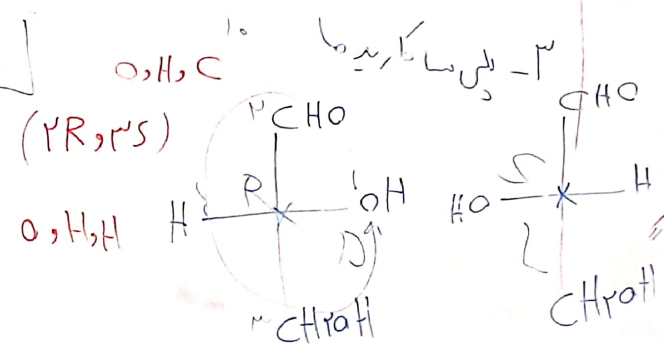 ۳ - پلی ساکاریدها
۱۰
O, H, C
(۲R, ۳S)
O, H, H
۲ CHO
H R ۱ OH
D
۳ CH۲OH
CHO
HO S H
L
CH۲OH